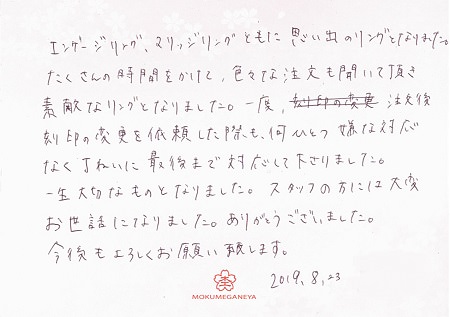 エンゲージリング、マリッジリングともに思い出のリングとなりました。
たくさんの時間をかけて、色々な注文も聞いて頂き
素敵なリングとなりました。一度、刻印の変更 注文後
刻印の変更を依頼した際も、何ひとつ嫌な対応
なくていねいに最後まで対応して下さりました。
一生大切なものとなりました。スタッフの方には大変
お世話になりました。ありがとうございました。
今後もよろしくお願い致します。
2019.8.23
MOKUMEGANEYA